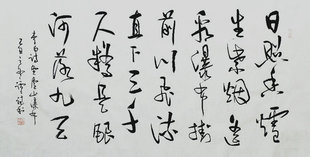 日照香爐
生紫烟遥
看瀑布掛
前川飛流
直下三千
尺疑是銀
河落九天
李白詩望廬山瀑布